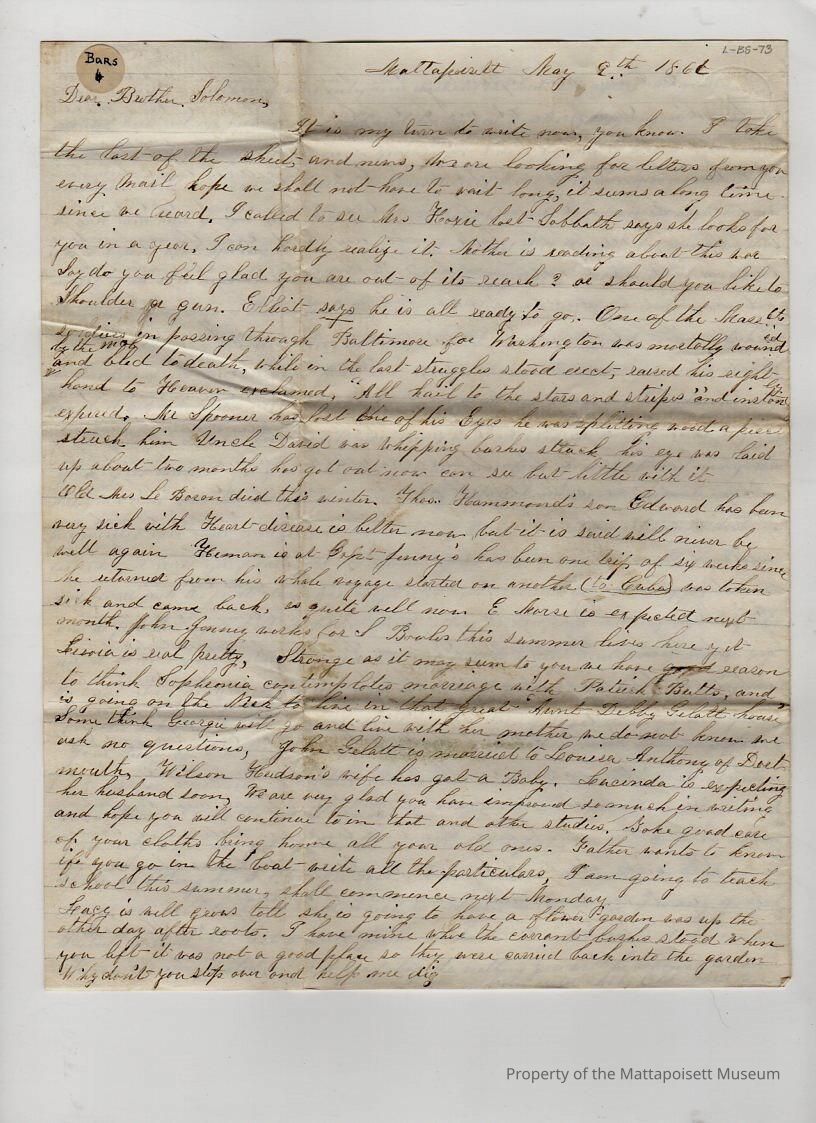 L-BS-73
Bars
4
Mattapoisett May 9th 1861
Dear Brother Solomon,
It is my turn to write now, you know. I take
the last of the sheet, and news, we are looking for letters from you
every mail hope we shall not have to wait long, it seems a long time
since we heard. I called to see Mrs Hoxie last Sabbath says she looks for
you in a year, I can hardly realize it. Mother is reading about this war
Say do you feel glad you are out of its reach? or should you like to
shoulder a gun. Elliot says he is all ready to go. One of the Mass.
soldiers in passing through Baltimore for Washington was mortally wounded
by the mob
and bled to death, while in the last struggles stood erect, raised his right
hand to Heaven exclaimed, "All hail to the stars and stripes" and instantly
expired. Mr Spooner has lost one of his Eyes he was splitting wood a piece
struck him Uncle David was whipping bushes struck his eye was laid
up about two months has got out now can see but little with it
Old Mrs Le Baron died this winter. Thos. Hammond's son Edward has been
very sick with Heart disease is better now but it is said will never be
well again Heman is at Capt Jenny's has been one trip of six weeks since
he returned from his whale voyage started on another (to Cuba) was taken
sick and came back, is quite well now E Morse is expected next
month. John Jenney works for S Bowles this summer lives here yet
is real pretty, Strange as it may seem to you we have reason
to think Sophronia contemplates marriage with Patrick Butts, and
is going on the Neck to live in that great "Aunt Debby Gelatt house"
Some think Georgie will go and live with her mother we do not know we
ask no questions, John Gelatt is married to Louisa Anthony of Dart
mouth, Wilson Hudson's wife has got a Baby. Lucinda is expecting
her husband soon, We are very glad you have improved so much in writing
and hope you will continue to in that and other studies. Take good care
of your cloths bring home all your old ones. Father wants to know
if you go in the boat write all the particulars, I am going to teach
school this summer, shall commence next Monday
is well grows tall she is going to have a flower garden was up the
other day after roots. I have mine where the currant bushes stood when
you left it was not a good place so they were carried back into the garden
Why don't you step over and help me dig
Property of the Mattapoisett Museum